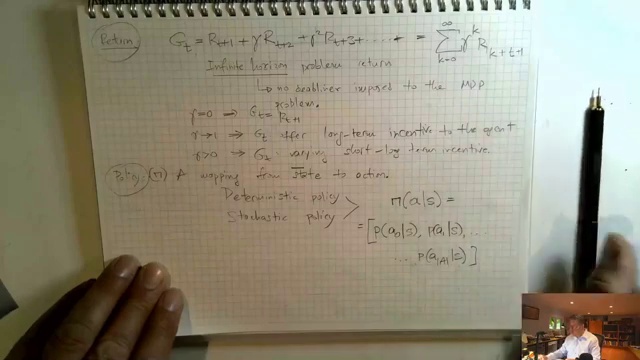 Return
G_t = R_{t+1} + γ R_{t+2} + γ² R_{t+3} + ..... + = ∑_{k=0}^{∞} γ^k R_{k+t+1}
Infinite horizon problem return
↳ no deadline imposed to the MDP
problem.
γ=0 ⟹ G_t = R_{t+1}
γ→1 ⟹ G_t offer long-term incentive to the agent
γ>0 ⟹ G_t varying short-long term incentive.
Policy (π) A mapping from state to action.
Deterministic policy
Stochastic policy
π(a|s) =
= [p(a_0|s), p(a_1|s), ...
... p(a_{|A|}|s)]